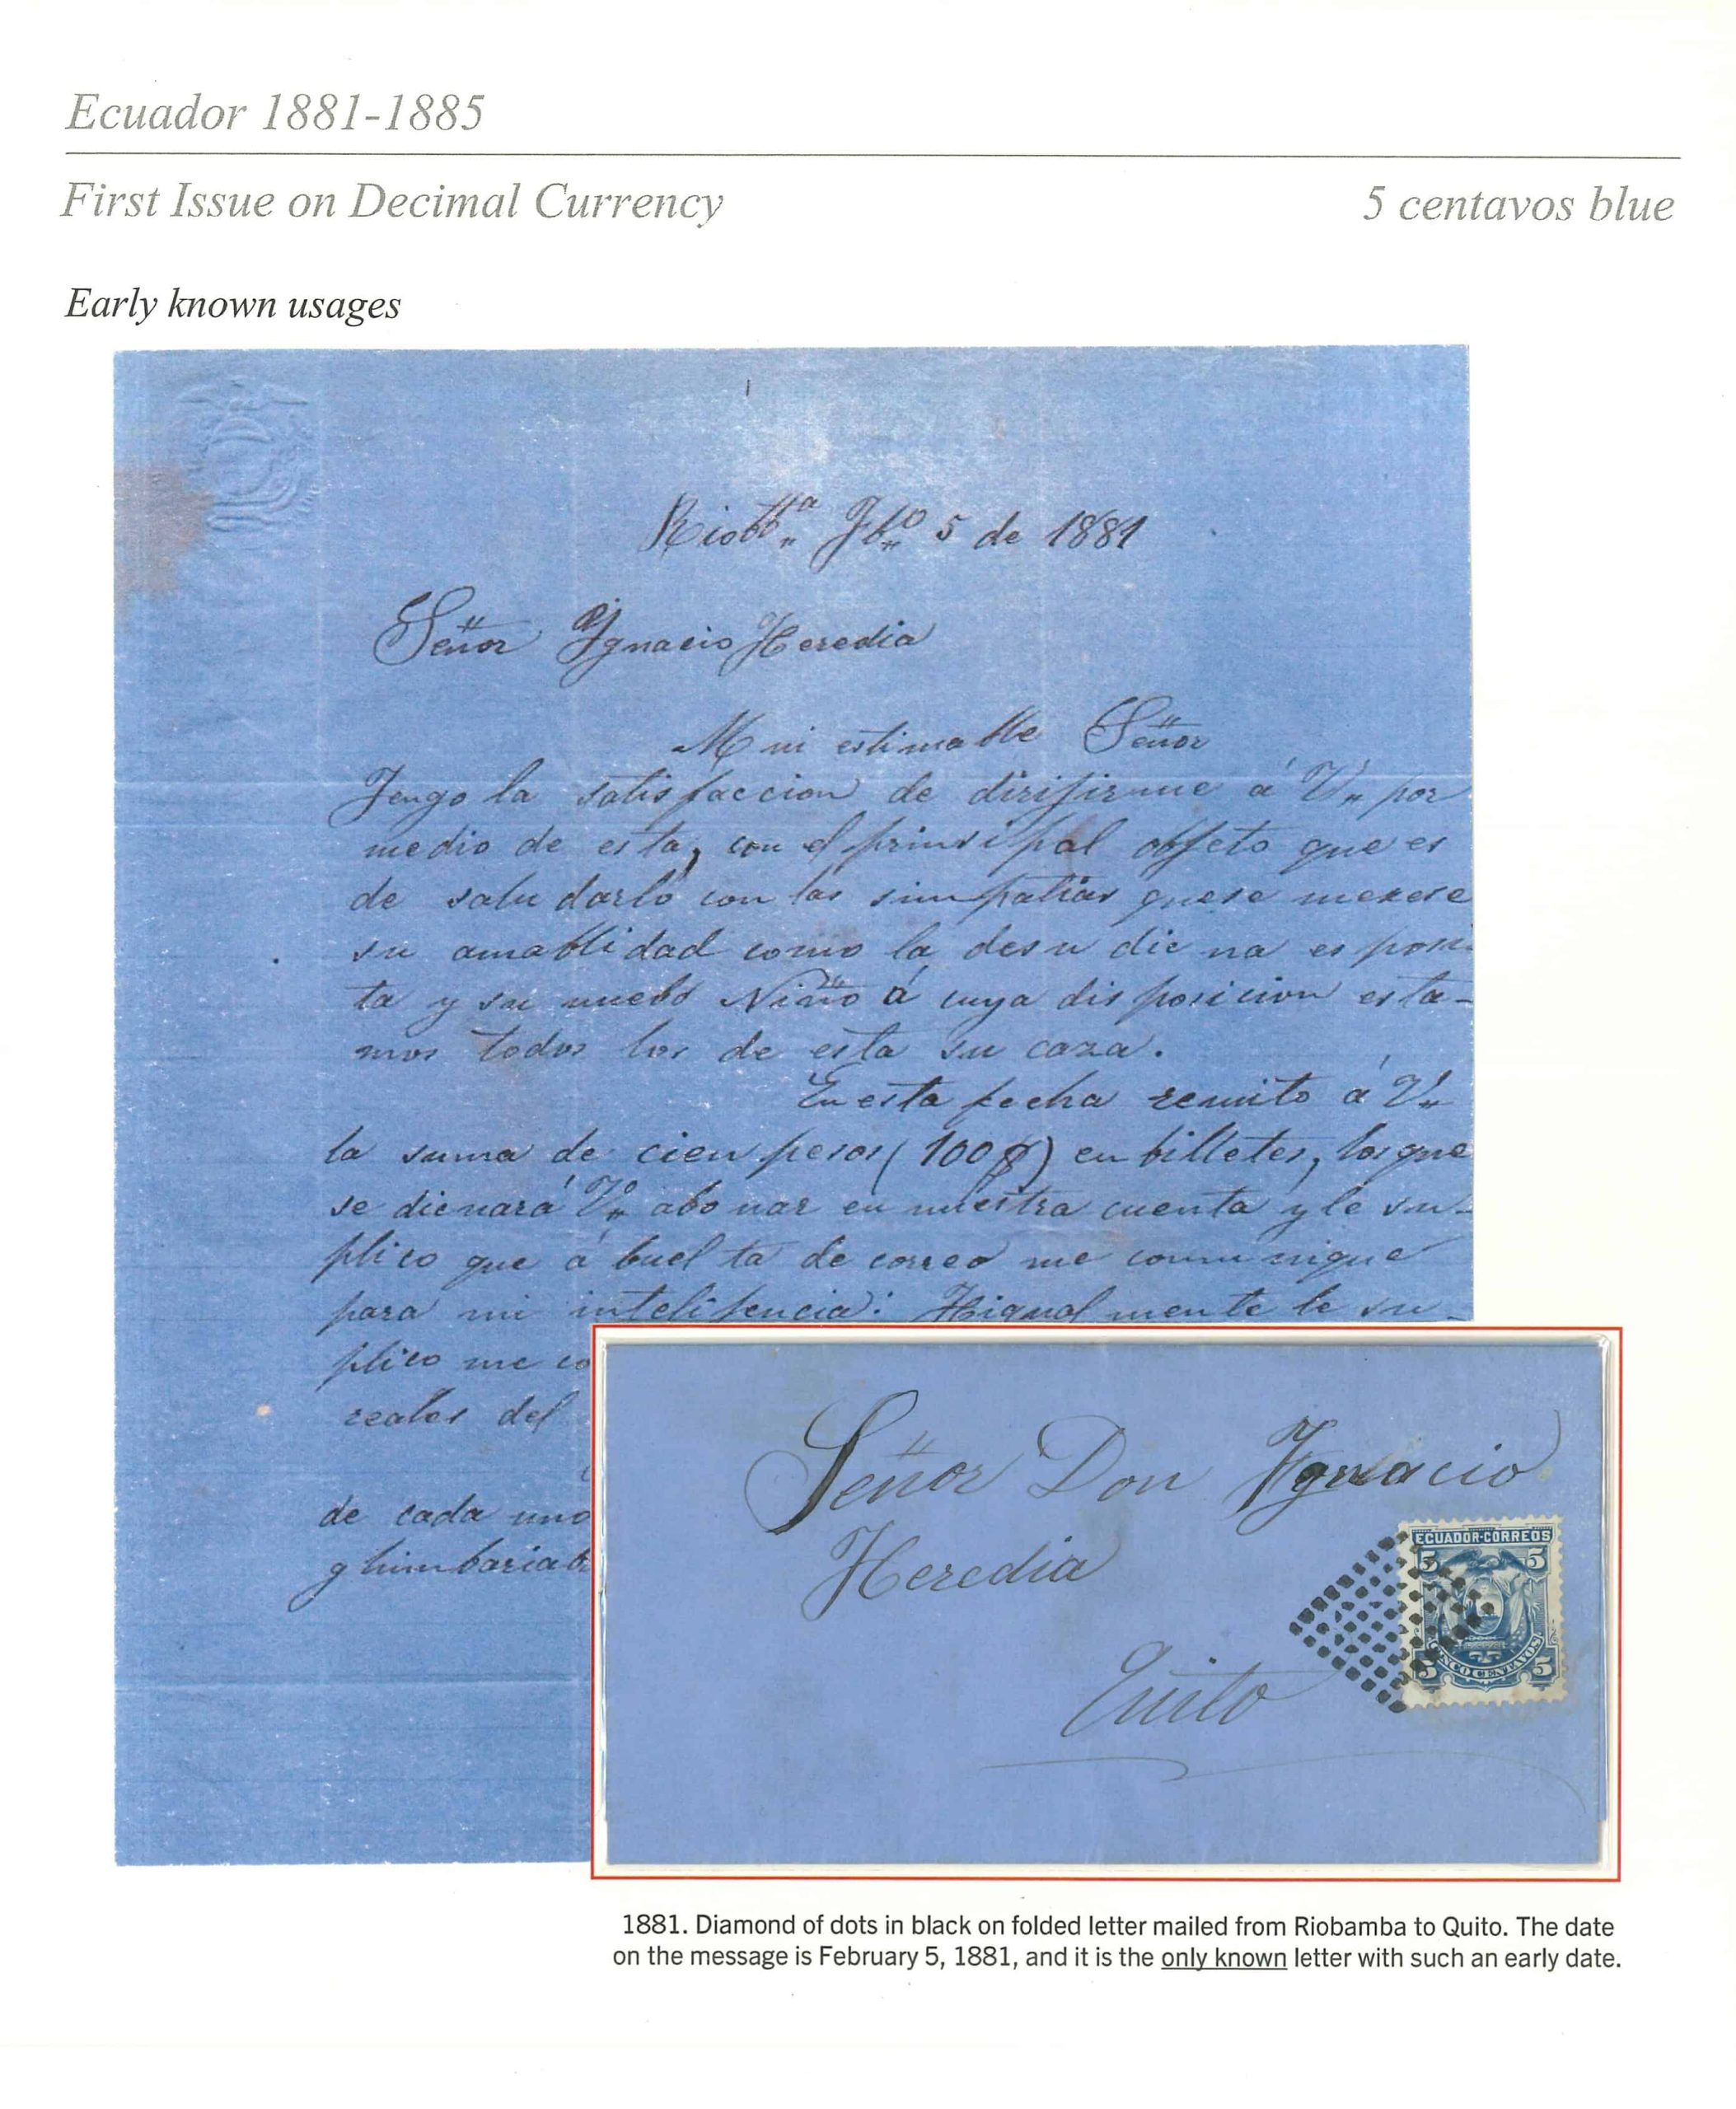 Ecuador 1881-1885
First Issue on Decimal Currency
5 centavos blue
Early known usages
Riobb.ª Fb.º 5 de 1881
Señor Ygnacio Heredia
Mui estimable Señor
Tengo la satisfaccion de dirijirme á V,, por
medio de esta, con el prinsipal objeto que es
de saludarlo con las simpatias quese merese
su amablidad como la desu dicna esposi-
ta y su nuebo Niño á cuya disposicion esta-
mos todos los de esta su caza.
En esta fecha remito á V,,
la suma de cien pesos (100$) en billetes, los que
se dicnará V,, abonar en nuestra cuenta y le su-
plico que á buelta de correo me comunique
para mi intelijencia: Higualmente le su-
plico me co
reales del
de cada uno
Señor Don Ygnacio
Heredia
Quito
ECUADOR-CORREOS
5 5
5 CINCO CENTAVOS 5
1881. Diamond of dots in black on folded letter mailed from Riobamba to Quito. The date
on the message is February 5, 1881, and it is the only known letter with such an early date.